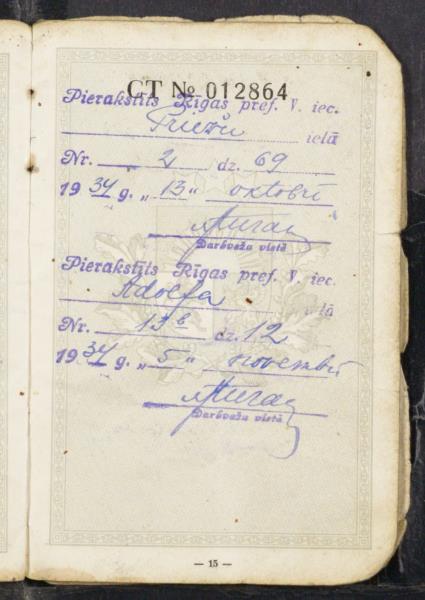 CT № 012864
Pierakstīts Rīgas pref. V. iec.
Priežu ielā
Nr. 2 dz. 69
1934 g. „13" oktobrī
Darbveža vietā
Pierakstīts Rīgas pref. V. iec.
Adolfa ielā
Nr. 13b dz. 12
1934 g. „5" novembrī
Darbveža vietā
— 15 —